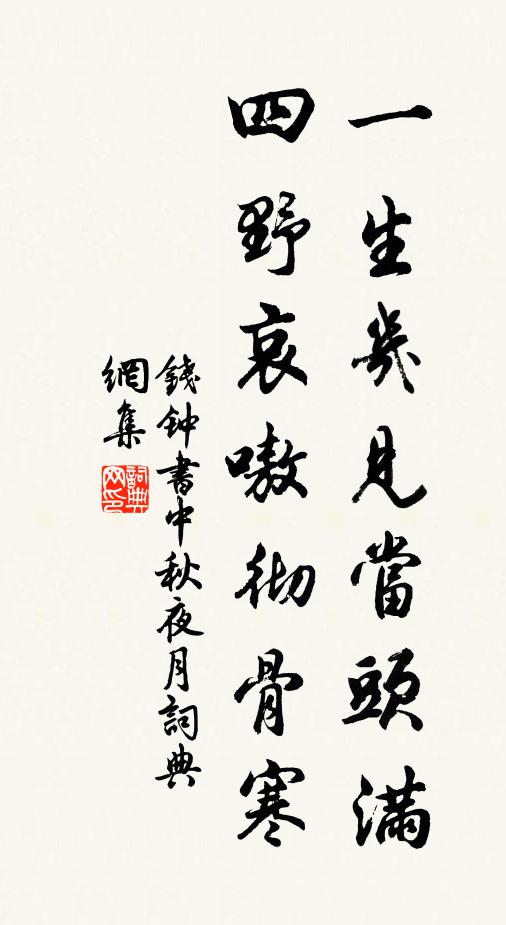 一生幾見當頭滿
四野哀嗷彻骨寒
錢钟書中秋夜月詞典
網集
詞典
网印